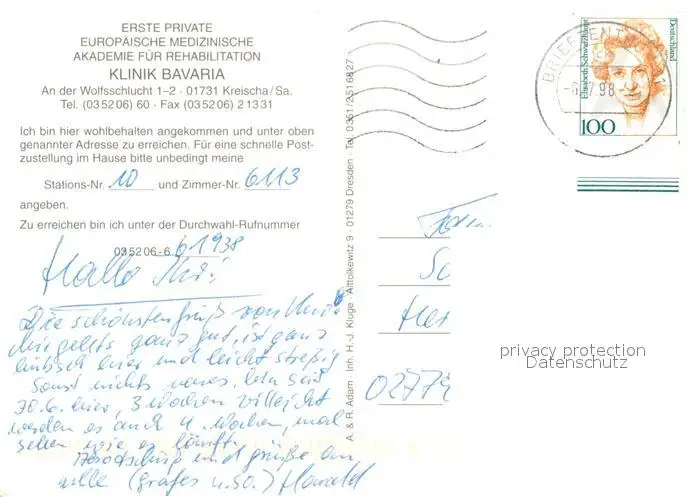 ERSTE PRIVATE
EUROPÄISCHE MEDIZINISCHE
AKADEMIE FÜR REHABILITATION
KLINIK BAVARIA
An der Wolfsschlucht 1–2 · 01731 Kreischa/Sa.
Tel. (035206) 60 · Fax (035206) 21331
Ich bin hier wohlbehalten angekommen und unter oben
genannter Adresse zu erreichen. Für eine schnelle Post-
zustellung im Hause bitte unbedingt meine
Stations-Nr. 10 und Zimmer-Nr. 6113
angeben.
Zu erreichen bin ich unter der Durchwahl-Rufnummer
035206-6 61938
Hallo
Die schönsten Grüße von
Mir gehts ganz gut, ist ganz
hübsch hier und leicht streßig
Sonst nichts neues, bin seit
30.6. hier, 3 Wochen villeicht
werden es auch 4 Wochen, mal
sehen wie es läuft.
und grüße an
alle (großes u. so.) Harald
A. & R. Adam · Inh. H.-J. Kluge · Alttolkewitz 9 · 01279 Dresden · Tel. 0351/2516827
BRIEFZENTRUM
-6.7.98
Deutschland
Elisabeth Schwarzhaupt
100
Fam.
Sc
Her
02779
privacy protection
Datenschutz